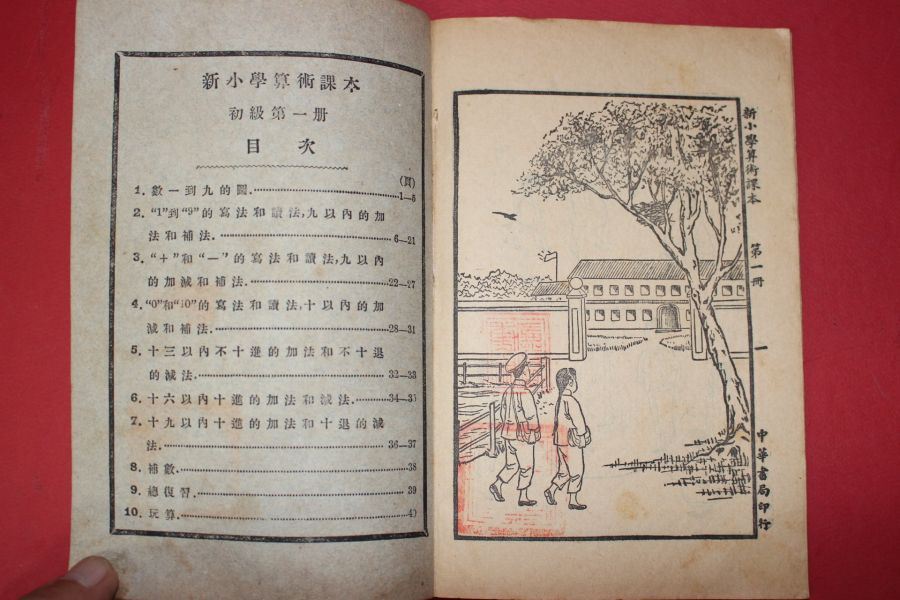 新小學算術課本
初級第一册
目次
(頁)
1. 數一到九的圖. 1—5
2. “1”到“9”的寫法和讀法,九以內的加
法和補法. 6—21
3. “+”和“—”的寫法和讀法,九以內
的加減和補法. 22—27
4. “0”和“10”的寫法和讀法,十以內的加
減和補法. 28—31
5. 十三以內不十進的加法和不十退
的減法. 32—33
6. 十六以內十進的加法和減法. 34—35
7. 十九以內十進的加法和十退的減
法. 36—37
8. 補數. 38
9. 總復習. 39
10. 玩算. 40
新小學算術課本 第一冊 一 中華書局印行